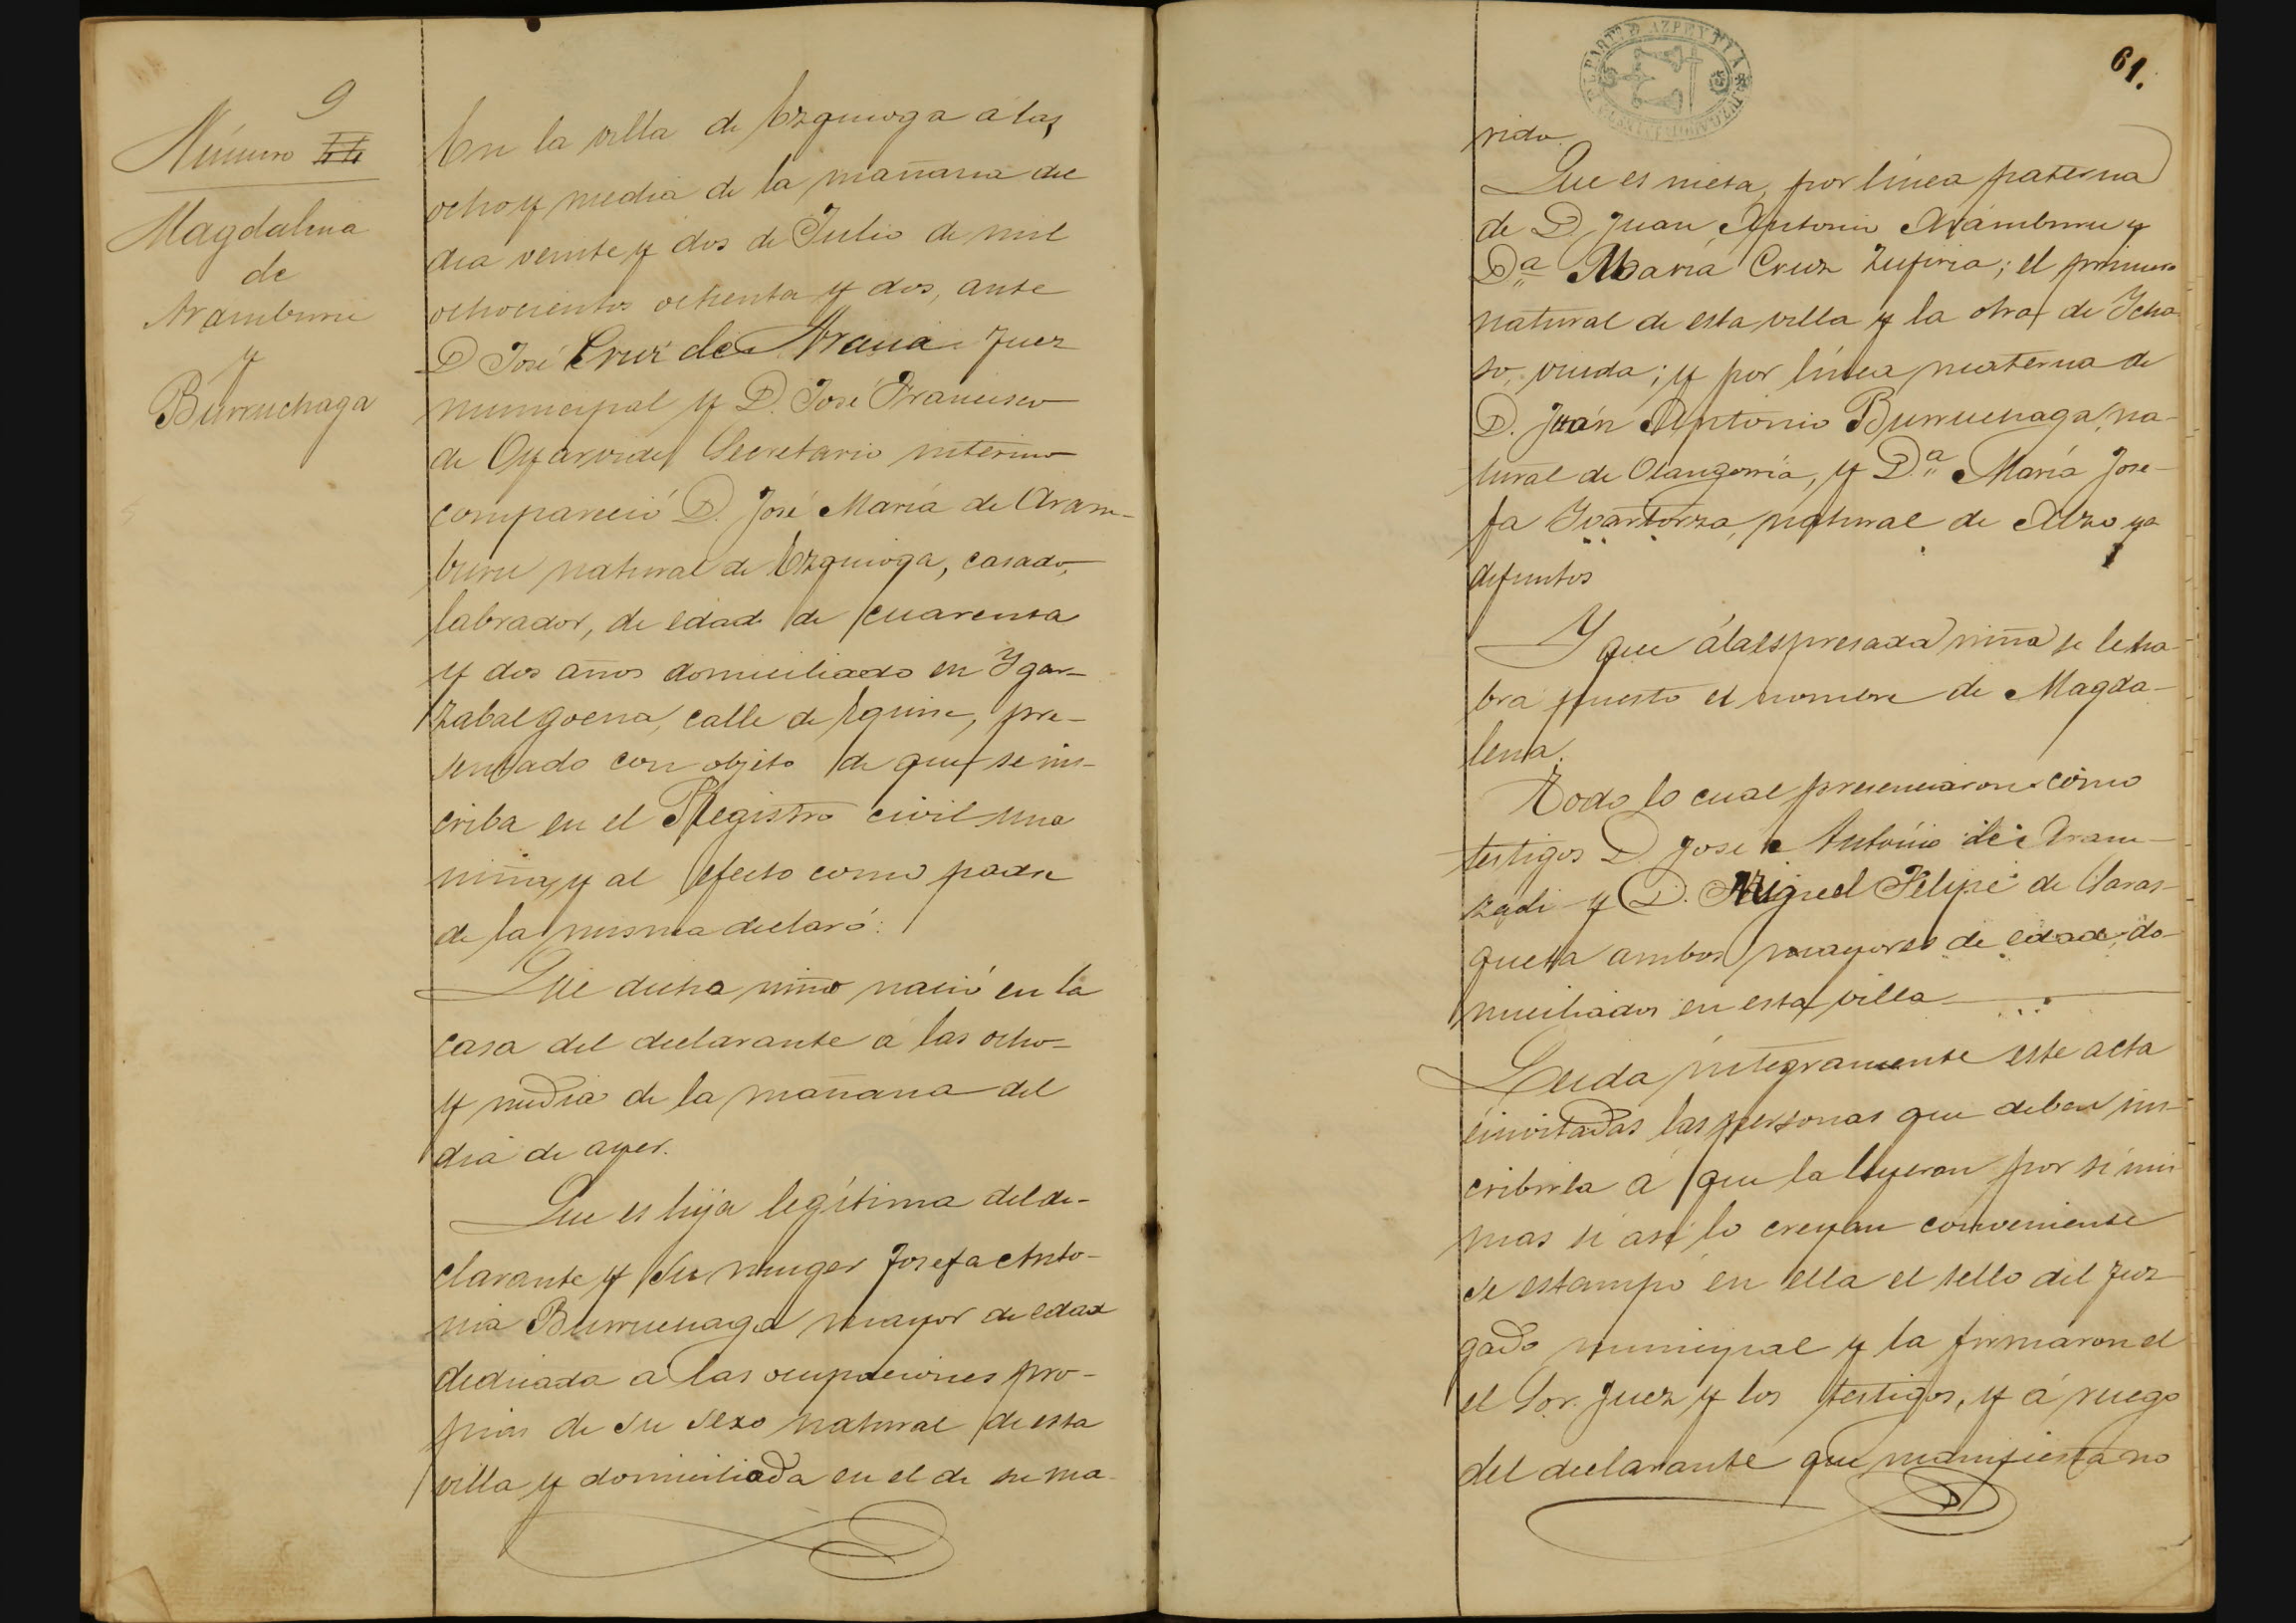 9
Número 44
Magdalena
de
Aramburu
y
Burruchaga
En la villa de Ezquioga a las
ocho y media de la mañana del
dia veinte y dos de Julio de mil
ochocientos ochenta y dos, ante
D José Cruz de Arana Juez
municipal y D. José Francisco
de Oyarvide Secretario interino
compareció D. José María de Aram-
buru natural de Ezquioga, casado,
labrador, de edad de cuarenta
y dos años domiciliado en Ygar-
zabalgoena, calle de Eguino, pre-
sentado con objeto de que se ins-
criba en el Registro civil una
niña, y al efecto como padre
de la misma declaró:
Que dicha niña nació en la
casa del declarante a las ocho
y media de la mañana del
dia de ayer.
Que es hija legítima del de-
clarante y su muger Josefa Anto-
nia Burruchaga mayor de edad
dedicada a las ocupaciones pro-
pias de su sexo natural de esta
villa y domiciliada en el de su ma-
61.
rido.
Que es nieta, por línea paterna
de D Juan Antonio Arámburu y
Dª María Cruz Zufiria; el primero
natural de esta villa y la otra de Ycha-
so, viuda; y por línea materna de
D. Juan Antonio Burruchaga, na-
tural de Olaugorria, y D.ª María Jose-
fa natural de Alzo ya
difuntos
Y que á la espresada niña se le ha-
bra puesto el nombre de Magda-
lena.
Todo lo cual presenciaron como
testigos D. José Antonio de Aram-
zadi y D. Miguel Felipe de Claras-
queta ambos mayores de edad, do-
miciliados en esta villa
Leida íntegramente este acta
é invitadas las personas que deben sus-
cribirla á que la leyeran por sí mis
mas si así lo creyan conveniente
se estampó en ella el sello del Juz
gado municipal y la firmaron el
el Sor. Juez y los testigos, y á ruego
del declarante que manifiesta no